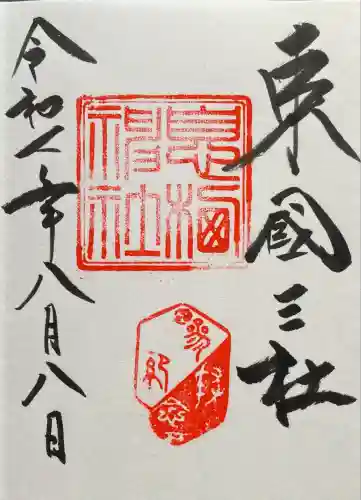 東國三社
息栖神社
令和 年八月八日